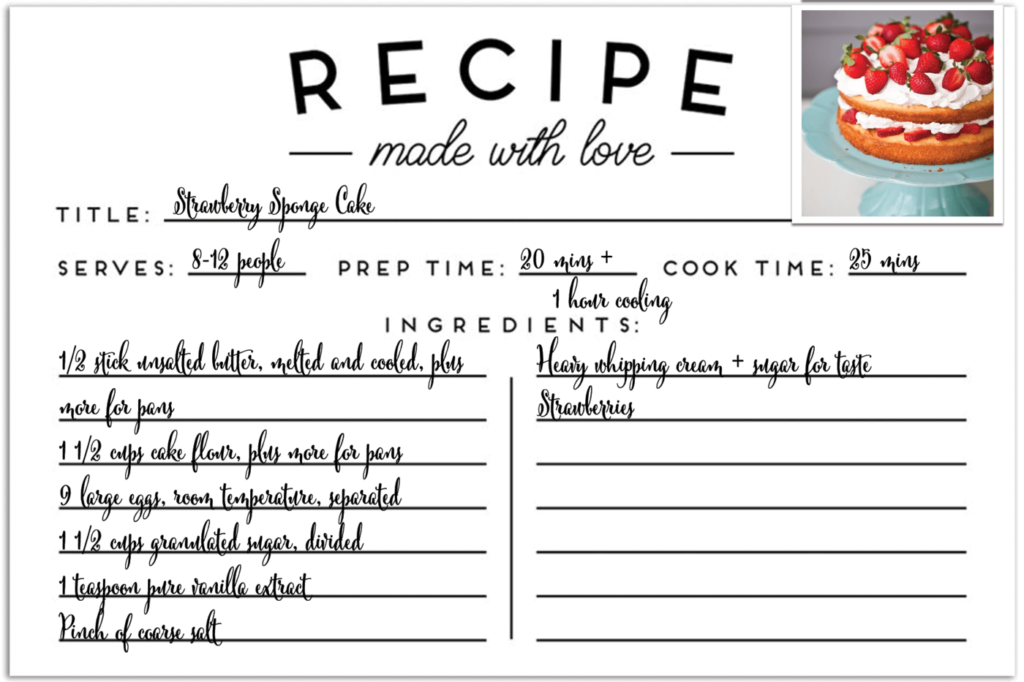 RECIPE
made with love
TITLE: Strawberry Sponge Cake
SERVES: 8-12 people PREP TIME: 20 mins + COOK TIME: 25 mins
1 hour cooling
INGREDIENTS:
1/2 stick unsalted butter, melted and cooled, plus
more for pans
1 1/2 cups cake flour, plus more for pans
9 large eggs, room temperature, separated
1 1/2 cups granulated sugar, divided
1 teaspoon pure vanilla extract
Pinch of coarse salt
Heavy whipping cream + sugar for taste
Strawberries